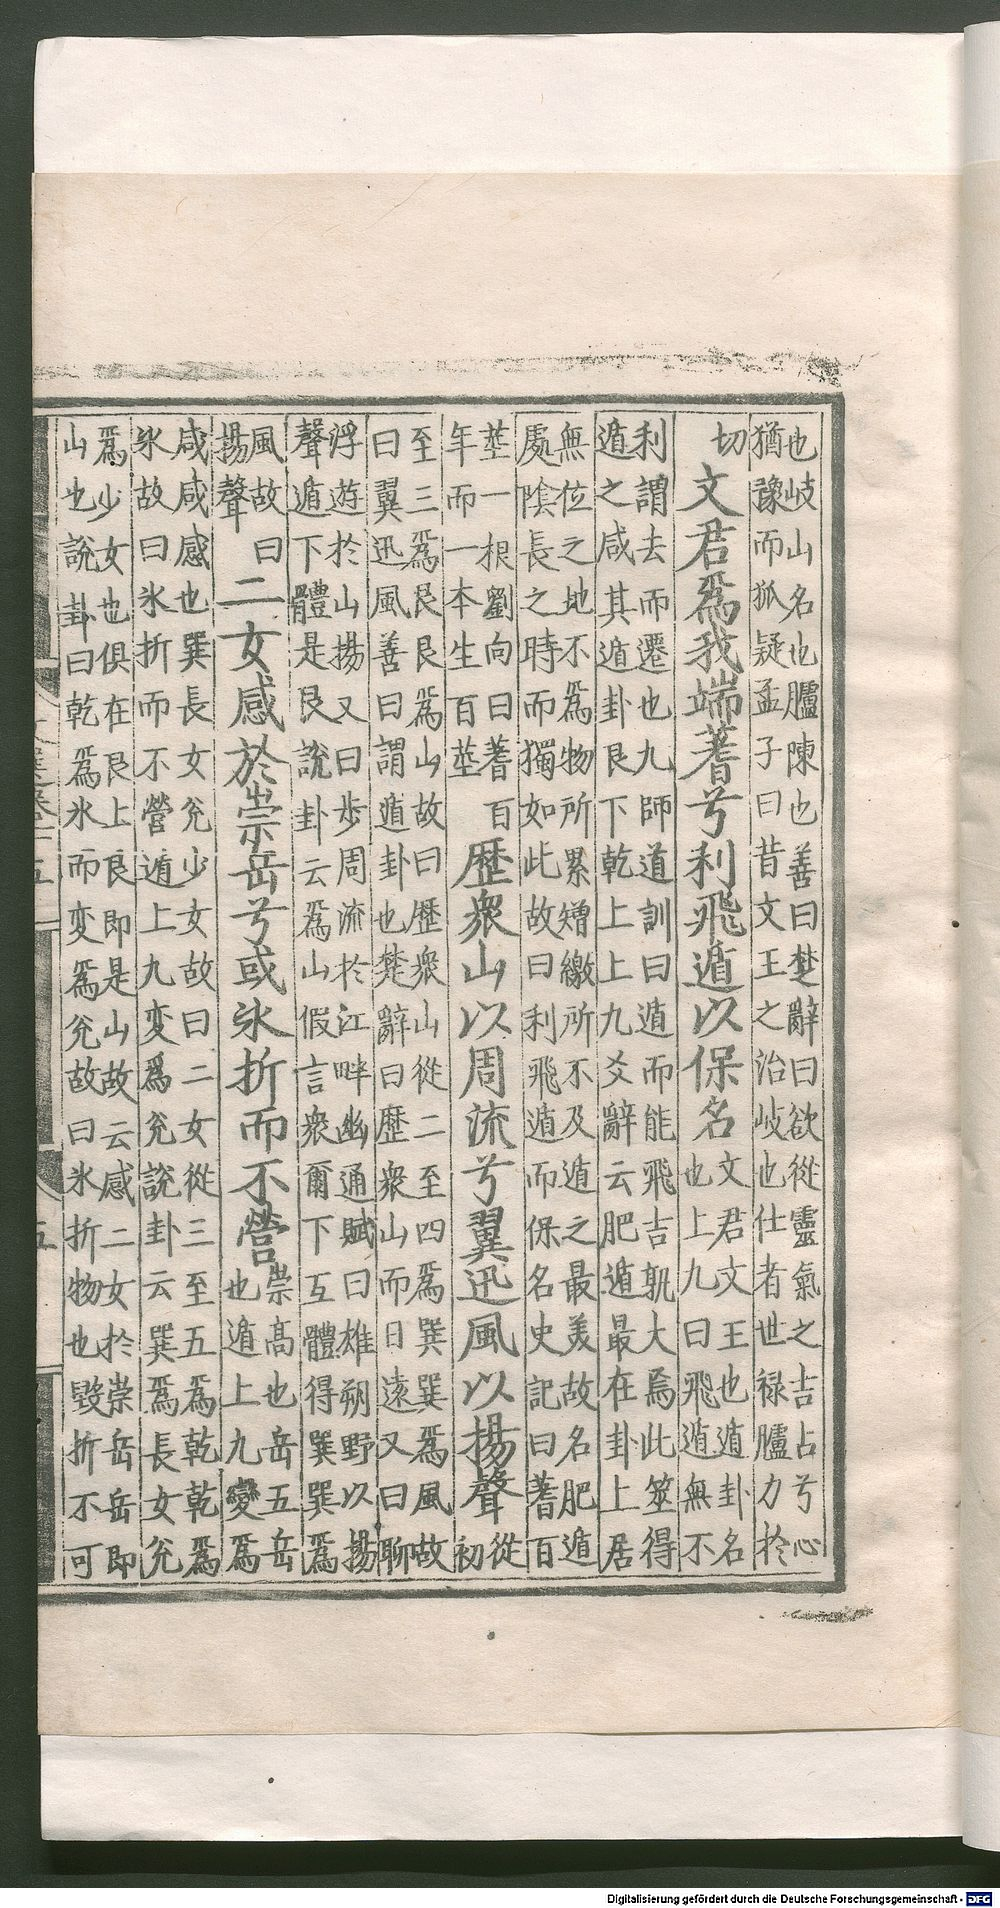 也岐山名也臚陳也善曰楚辭曰欲從靈氣之吉占兮心
猶豫而狐疑孟子曰昔文王之治岐也仕者世禄臚力於
切
文君爲我端蓍兮利飛遁以保名
文君文王也遁卦名
也上九曰飛遁無不
利謂去而遷也九師道訓曰遁而能飛吉孰大焉此筮得
遁之咸其遁卦艮下乾上上九爻辭云肥遁最在卦上居
無位之地不爲物所累矰繳所不及遁之最美故名肥遁
處陰長之時而獨如此故曰利飛遁而保名史記曰蓍百
莖一根劉向曰蓍百
年而一本生百莖
歷衆山以周流兮翼迅風以揚聲
從
初
至三爲艮艮爲山故曰歷衆山從二至四爲巽巽爲風故
曰翼迅風善曰謂遁卦也楚辭曰歷衆山而日遠又曰聊
浮遊於山揚又曰步周流於江畔幽通賦曰雄朔野以揚
聲遁下體是艮說卦云爲山假言衆爾下互體得巽巽爲
風故曰
揚聲
二女感於崇岳兮或氷折而不營
崇高也岳五岳
也遁上九變爲
咸咸感也巽長女兊少女故曰二女從三至五爲乾乾爲
氷故曰氷折而不營遁上九変爲兊說卦云巽爲長女兊
爲少女也俱在艮上艮即是山故云感二女於崇岳岳即
山也說卦曰乾爲氷而変爲兊故曰氷折物也毀折不可
五
Digitalisierung gefördert durch die Deutsche Forschungsgemeinschaft - DFG